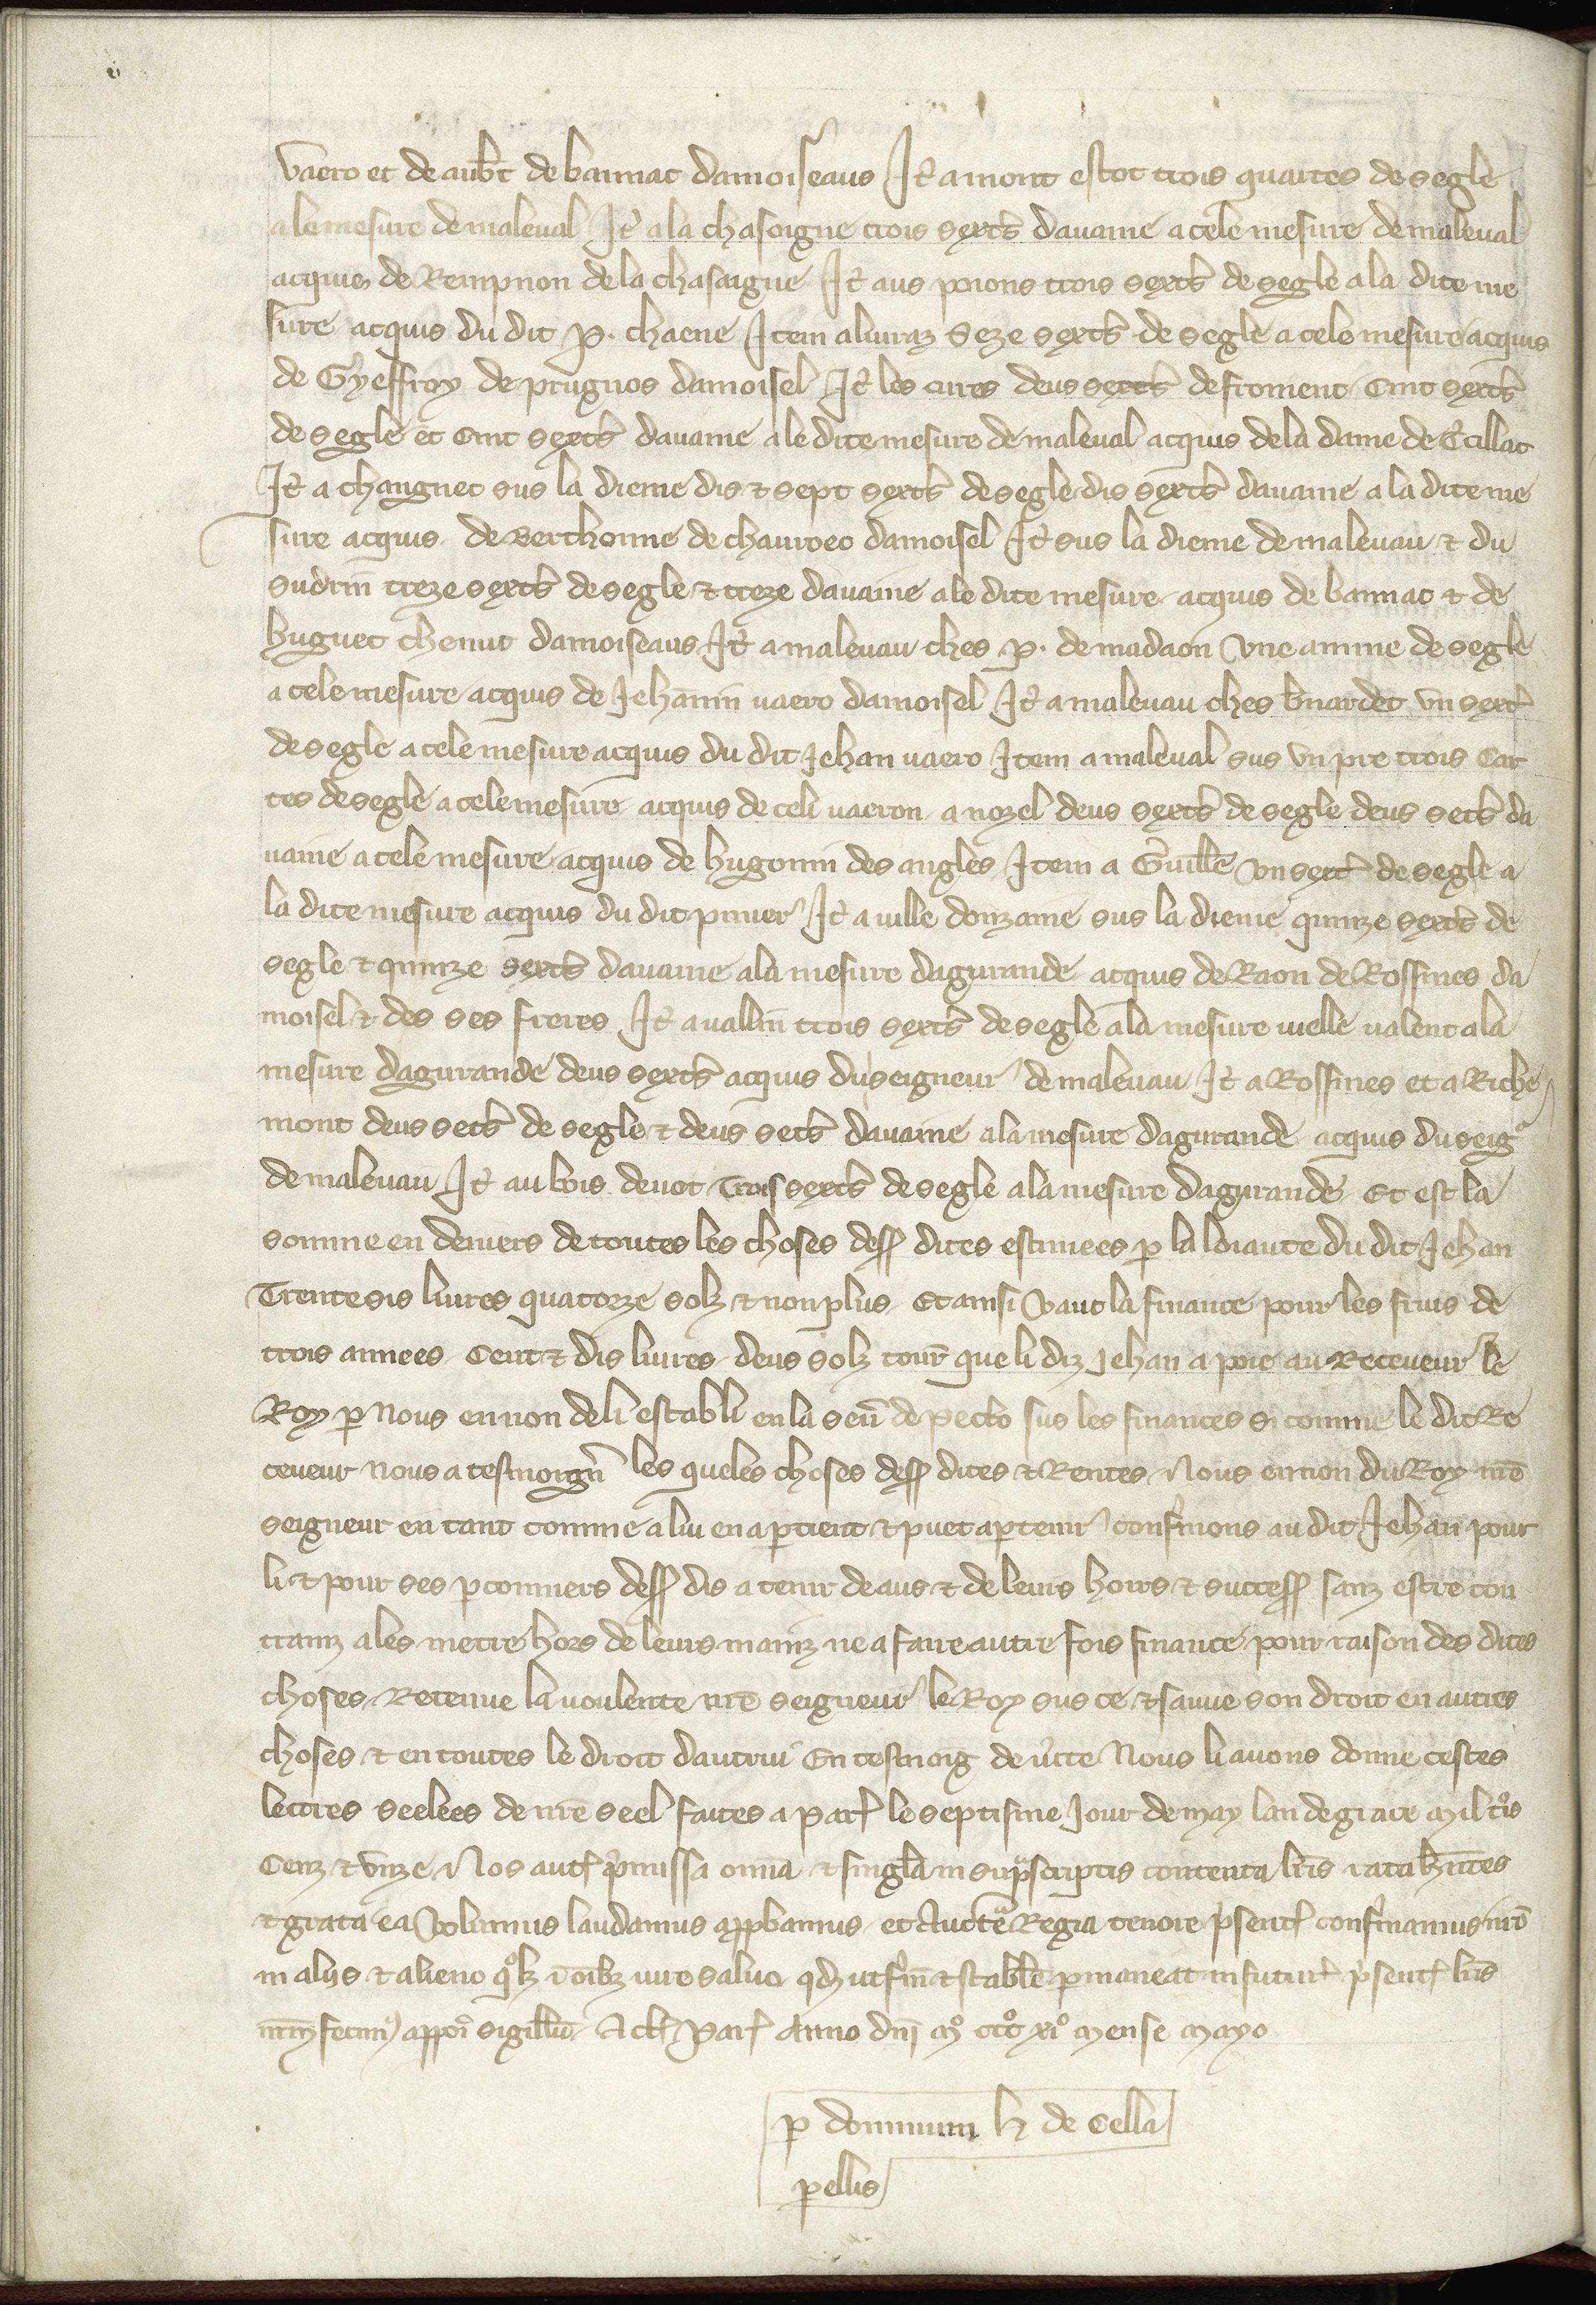 vaero et de aub't de bannac damoiseaus Jt' a mont escot trois quartes de segle
a le mesure de maleval Jt' a la chasoigne trois sext's davaine a cele mesure de maleval
acquis de Rempnon de la chasaigne Jt' aus poions trois sext's de segle a la dite me
sure acquis du dit P. chaene Jtem a luiraz seze sext's de segle a cele mesure acquis
de Gyeffroy de prugnos damoisel Jt' les cures deus sext's de froment cint sext's
de segle et cint sext's davaine a le dite mesure de maleval acquis de la dame de Cillac
Jt' a changnet sus la dieme dis & sept sext's de segle dis sext's davaine a la dite me
sure acquis de Berthonne de chauroeo damoisel Jt' sus la dieme de malevau & du
sudrin treze sext's de segle & treze davaine a le dite mesure acquis de bannac & de
huguet chenut damoiseaus Jt' a malevau ches P. de madaon une amine de segle
a cele mesure acquis de Jehannin vaero damoisel Jt' a malevau ches b'nardet un sext'
de segle a cele mesure acquis du dit Jehan vaero Jtem a maleval sus un pre trois car
tes de segle a cele mesure acquis de celi vaeron a nozel deus sext's de segle deus sect's da
vaine a cele mesure acquis de hugonin des angles Jtem a Guille un sext' de segle a
la dite mesure acquis du dit pinier Jt' a ville donzaine sus la dieme quinze sext's de
segle & quinze sext's davaine a la mesure dagurande acquis de Raon de Rossines da
moisel & des ses freres Jt' a vallin trois sext's de segle a la mesure vielle valent a la
mesure dagurande deus sext's acquis du seigneur de malevau Jt' a Rossines et a Riche
mont deus sect's de segle & deus sect's davaine a la mesure dagurande acquis du seig'
de malevau Jt' au bois devot Trois sext's de segle a la mesure dagurande Et est la
somme en deniers de toutes les choses dess' dites estimees p la loiaute du dit Jehan
Trente sis livres quatorze solz & non plus Et ainsi vaut la finance pour les fruis de
trois annees Cent & dis livres deus solz tour' que li diz Jehan a poie au Receveur le
Roy p nous en non de li establi en la sen' de pecto sus les finances si comme le dit Re
ceveur nous a tesmoign' les queles choses dess' dites & Rentes Nous en non du Roy nr'e
seigneur en tant comme a lui en apartient & puet apartenir conf'mons au dit Jehan pour
li & pour ses pconniers dess' dis a tenir de aus & de leurs hoirs & success' sanz estre con
trainz a les metre hors de leurs mainz ne a faire autre fois finance pour raison des dites
choses Retenue la voulente nr'e seigneur le Roy sus ce & sauve son droit en autres
choses & en toutes le droit dautrui En tesmoig de v'ite Nous li avons donne cestes
lettres seelees de nr'e seel faites a Par' le septisme Jour de may lan de grace mil t'ois
Cenz & unze Nos aut' p'missa omnia & singl'a in sup'scriptis contenta litt'is rata h'ntes
& grata ea volumus laudamus app'bamus et auct'te Regia tenore p'sent' conf'mamus nr'o
in aliis & alieno q'olz i o'ibz iure salvo qd ut f'm & stabile p'maneat in futur' p'sent' litt'is
nr'm fecim' appo'i sigillu' Act' Par' Anno d'ni m° ccc° xi° mense mayo
p dominum h de Cella
pellis